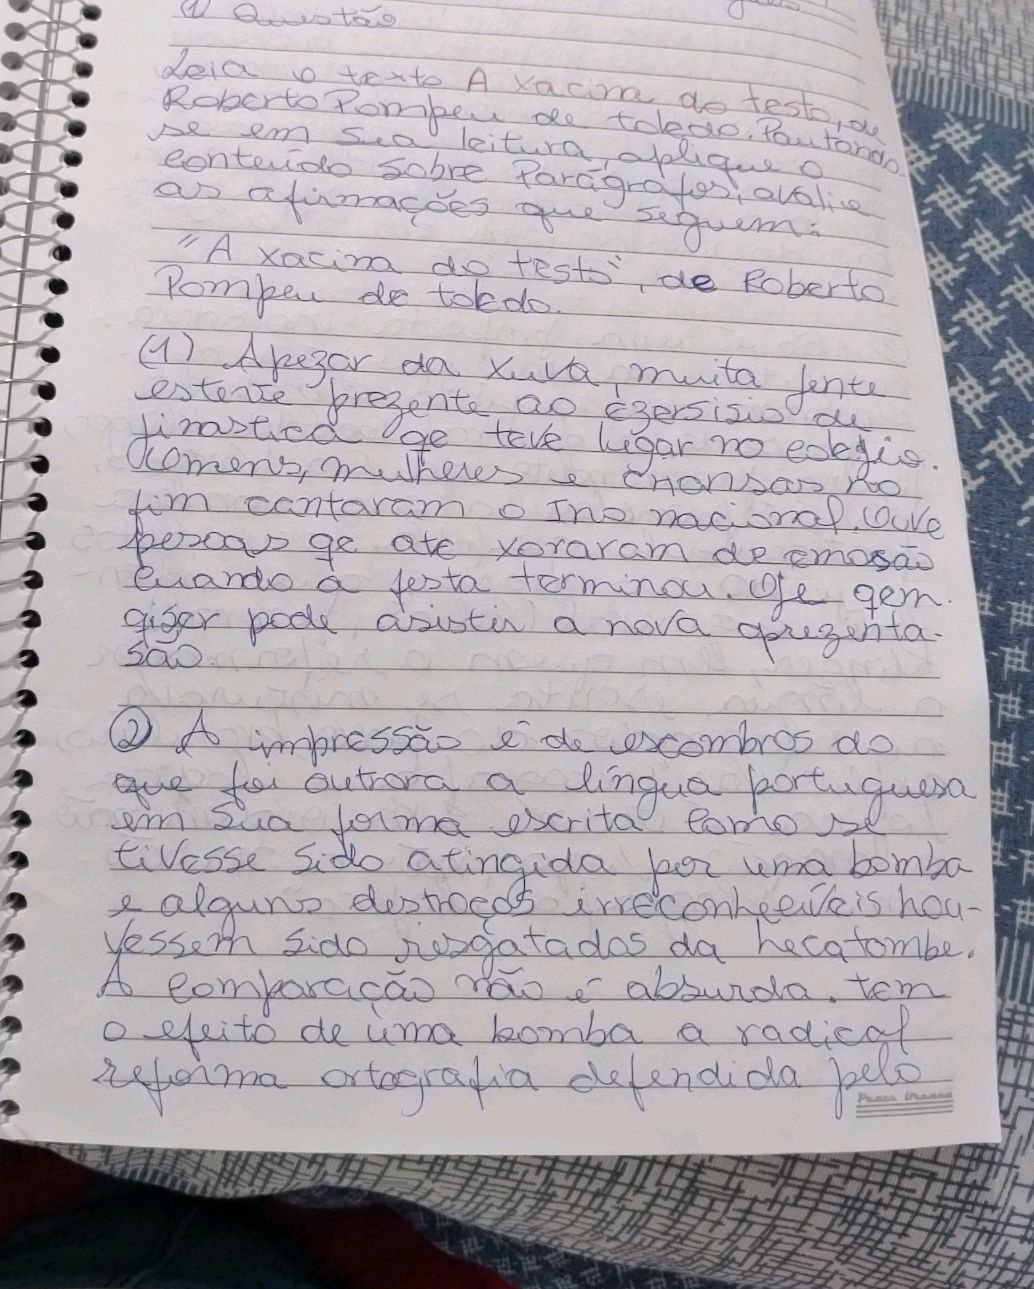 1) Questão
Leia o texto A xacina do testo, de
Roberto Pompeu de toledo. Pautando
se em sua leitura, aplique o
conteúdo sobre Parágrafos, avalie
as afirmações que seguem:
"A xacina do testo", de Roberto
Pompeu de toledo.
(1) Apezar da xuva, muita jente
esteve prezente ao ezersisio de
jinastica qe teve lugar no colejio.
Omens, mulheres e crionsas no
fim cantaram o Ino nacional. Ouve
pesoas qe ate xoraram de emosão
cuando a festa terminou. Oje qem
qiser pode asistir a nova aprezenta-
são.
2) A impressão é de escombros do
que foi outrora a língua portuguesa
em sua forma escrita como se
tivesse sido atingida por uma bomba
e alguns destroços irreconhecíveis hou-
vessem sido resgatados da hecatombe.
A comparação não é absurda. tem
o efeito de uma bomba a radical
reforma ortografia defendida pelo